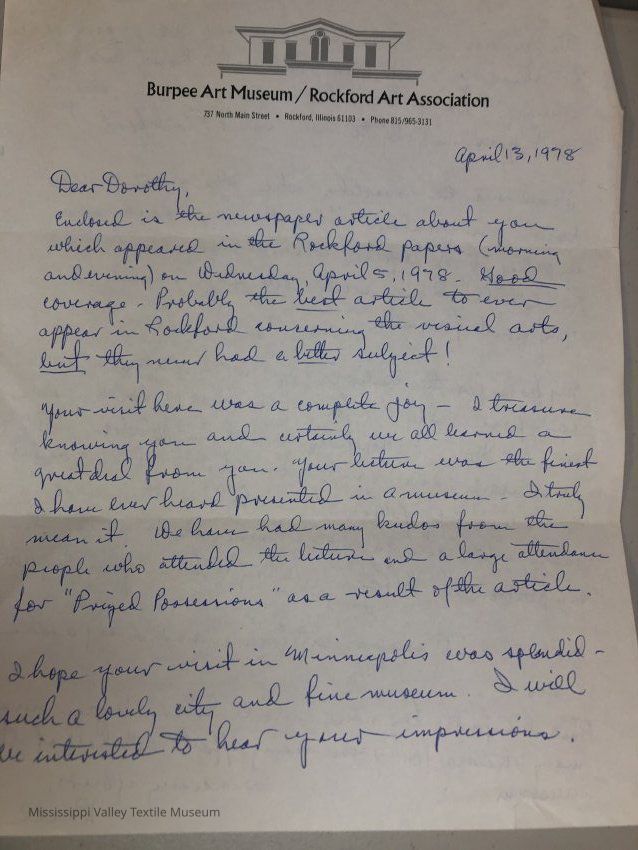 Burpee Art Museum / Rockford Art Association
737 North Main Street • Rockford, Illinois 61103 • Phone 815/965-3131
April 13, 1978
Dear Dorothy,
Enclosed is the newspaper article about you
which appeared in the Rockford papers (morning
and evening) on Wednesday, April 5, 1978. Good
coverage - Probably the best article to ever
appear in Rockford concerning the visual arts,
but they never had a better subject!
Your visit here was a complete joy - I treasure
knowing you and certainly we all learned a
great deal from you. Your lecture was the finest
I have ever heard presented in a museum - I truly
mean it. We have had many kudos from the
people who attended the lecture and a large attendance
for "Prized Possessions" as a result of the article.
I hope your visit in Minneapolis was splendid -
such a lovely city and fine museum. I will
be interested to hear your impressions.
Mississippi Valley Textile Museum